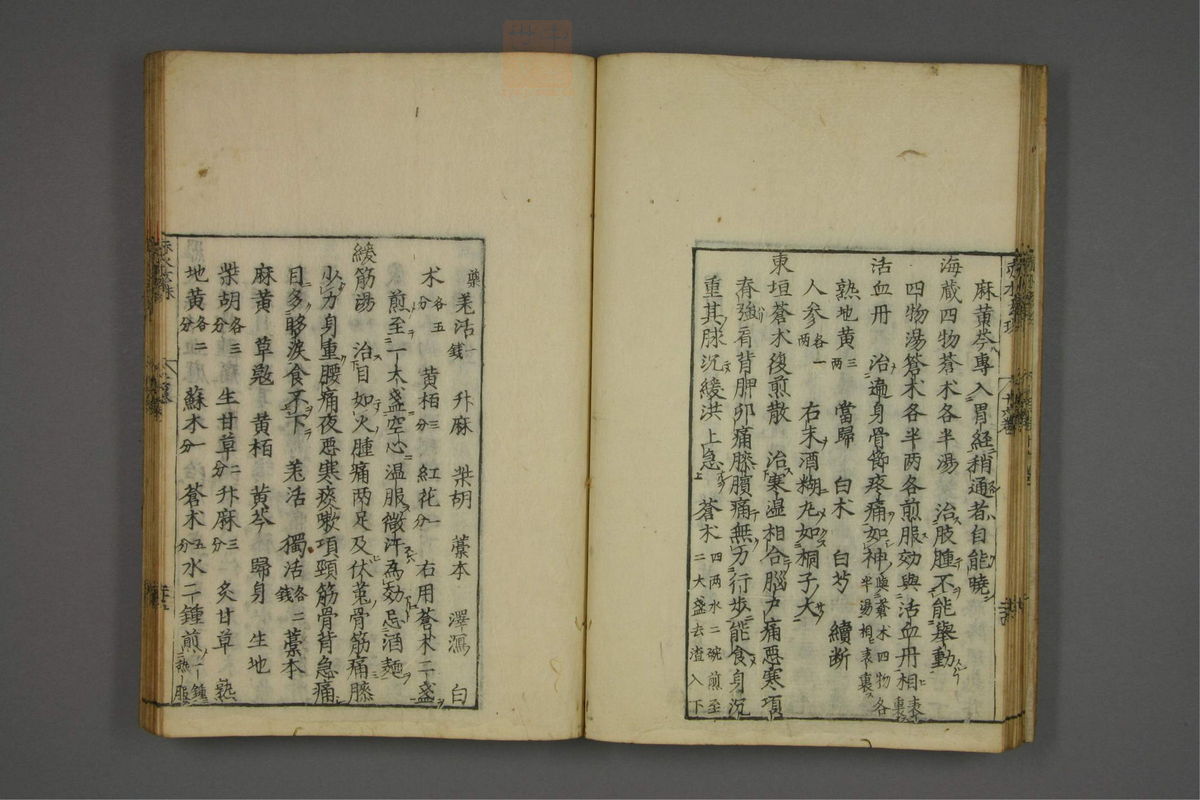 麻黄芩專入胃經稍通者自能曉
海蔵四物蒼术各半湯 治肢腫不能舉動
四物湯蒼术各半两各煎服効與活血丹相表裏
活血丹 治遍身骨節疼痛如神與蒼术四物各半湯相表裏
熟地黄三两 當歸 白术 白芍 續断
人参各一两 右末酒糊丸如桐子大
東垣蒼术復煎散 治寒湿相合腦户痛悪寒項
脊強肩背胛卯痛膝臏痛無力行歩能食身沉
重其脉沉緩洪上急 蒼术四两水二碗煎至二大盞去渣入下
藥 羌活一錢 升麻 柴胡 藁本 澤瀉 白
术各五分 黄栢三分 紅花一分 右用蒼术二盞
煎至一大盞空心温服微汗為効忌酒麺
緩筋湯 治目如火腫痛两足及伏兎骨筋痛膝
少力身重腰痛夜悪寒痰嗽項頸筋骨背急痛
目多眵涙食不下 羌活 獨活各二錢 藁本
麻黄 草荳 黄栢 黄芩 歸身 生地
柴胡各三分 生甘草二分 升麻三分 炙甘草 熟
地黄各二分 蘇木一分 蒼术五分 水二鍾煎一鍾熱服